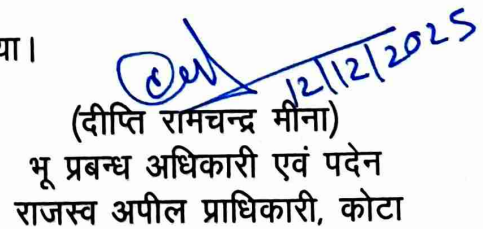 या।
12/12/2025
(दीप्ति रामचन्द्र मीना)
भू प्रबन्ध अधिकारी एवं पदेन
राजस्व अपील प्राधिकारी, कोटा